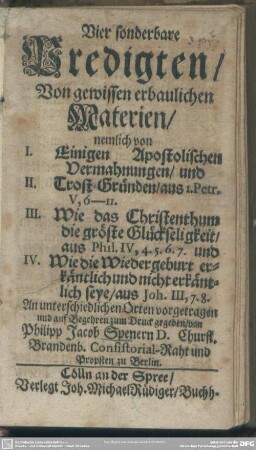 Vier sonderbare
Predigten/
Von gewissen erbaulichen
Materien/
nemlich von
I. Einigen Apostolischen
Vermahnungen/ und
II. Trost-Gründen/aus 1. Petr.
V, 6—11.
III. Wie das Christenthum
die gröste Glückseligkeit/
aus Phil. IV, 4. 5. 6. 7. und
IV. Wie die Wiedergeburt er-
käntlich und nicht erkänt-
lich seye/aus Joh. III, 7. 8.
An unterschiedlichen Orten vorgetragen
und auf Begehren zum Druck gegeben/von
Philipp Jacob Spenern D. Churfl.
Brandenb. Consistorial-Raht und
Propsten zu Berlin.
Cölln an der Spree/
Verlegt Joh. Michael Rüdiger/ Buchh.